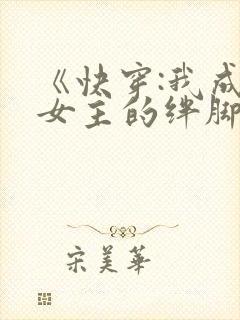 《快穿:我成
女主的绊脚
宋美华